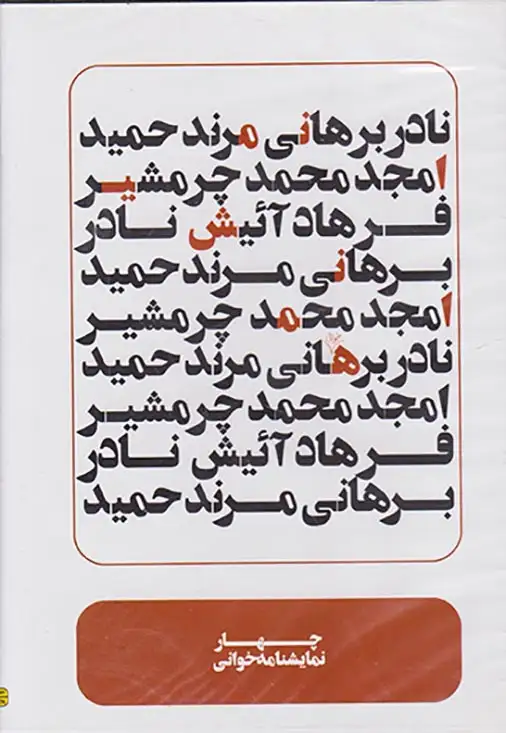 نادر برهانی مرند حمید
امجد محمد چرمشیر
فرهاد آئیش نادر
برهانی مرند حمید
امجد محمد چرمشیر
نادر برهانی مرند حمید
امجد محمد چرمشیر
فرهاد آئیش نادر
برهانی مرند حمید
چهار
نمایشنامه‌خوانی